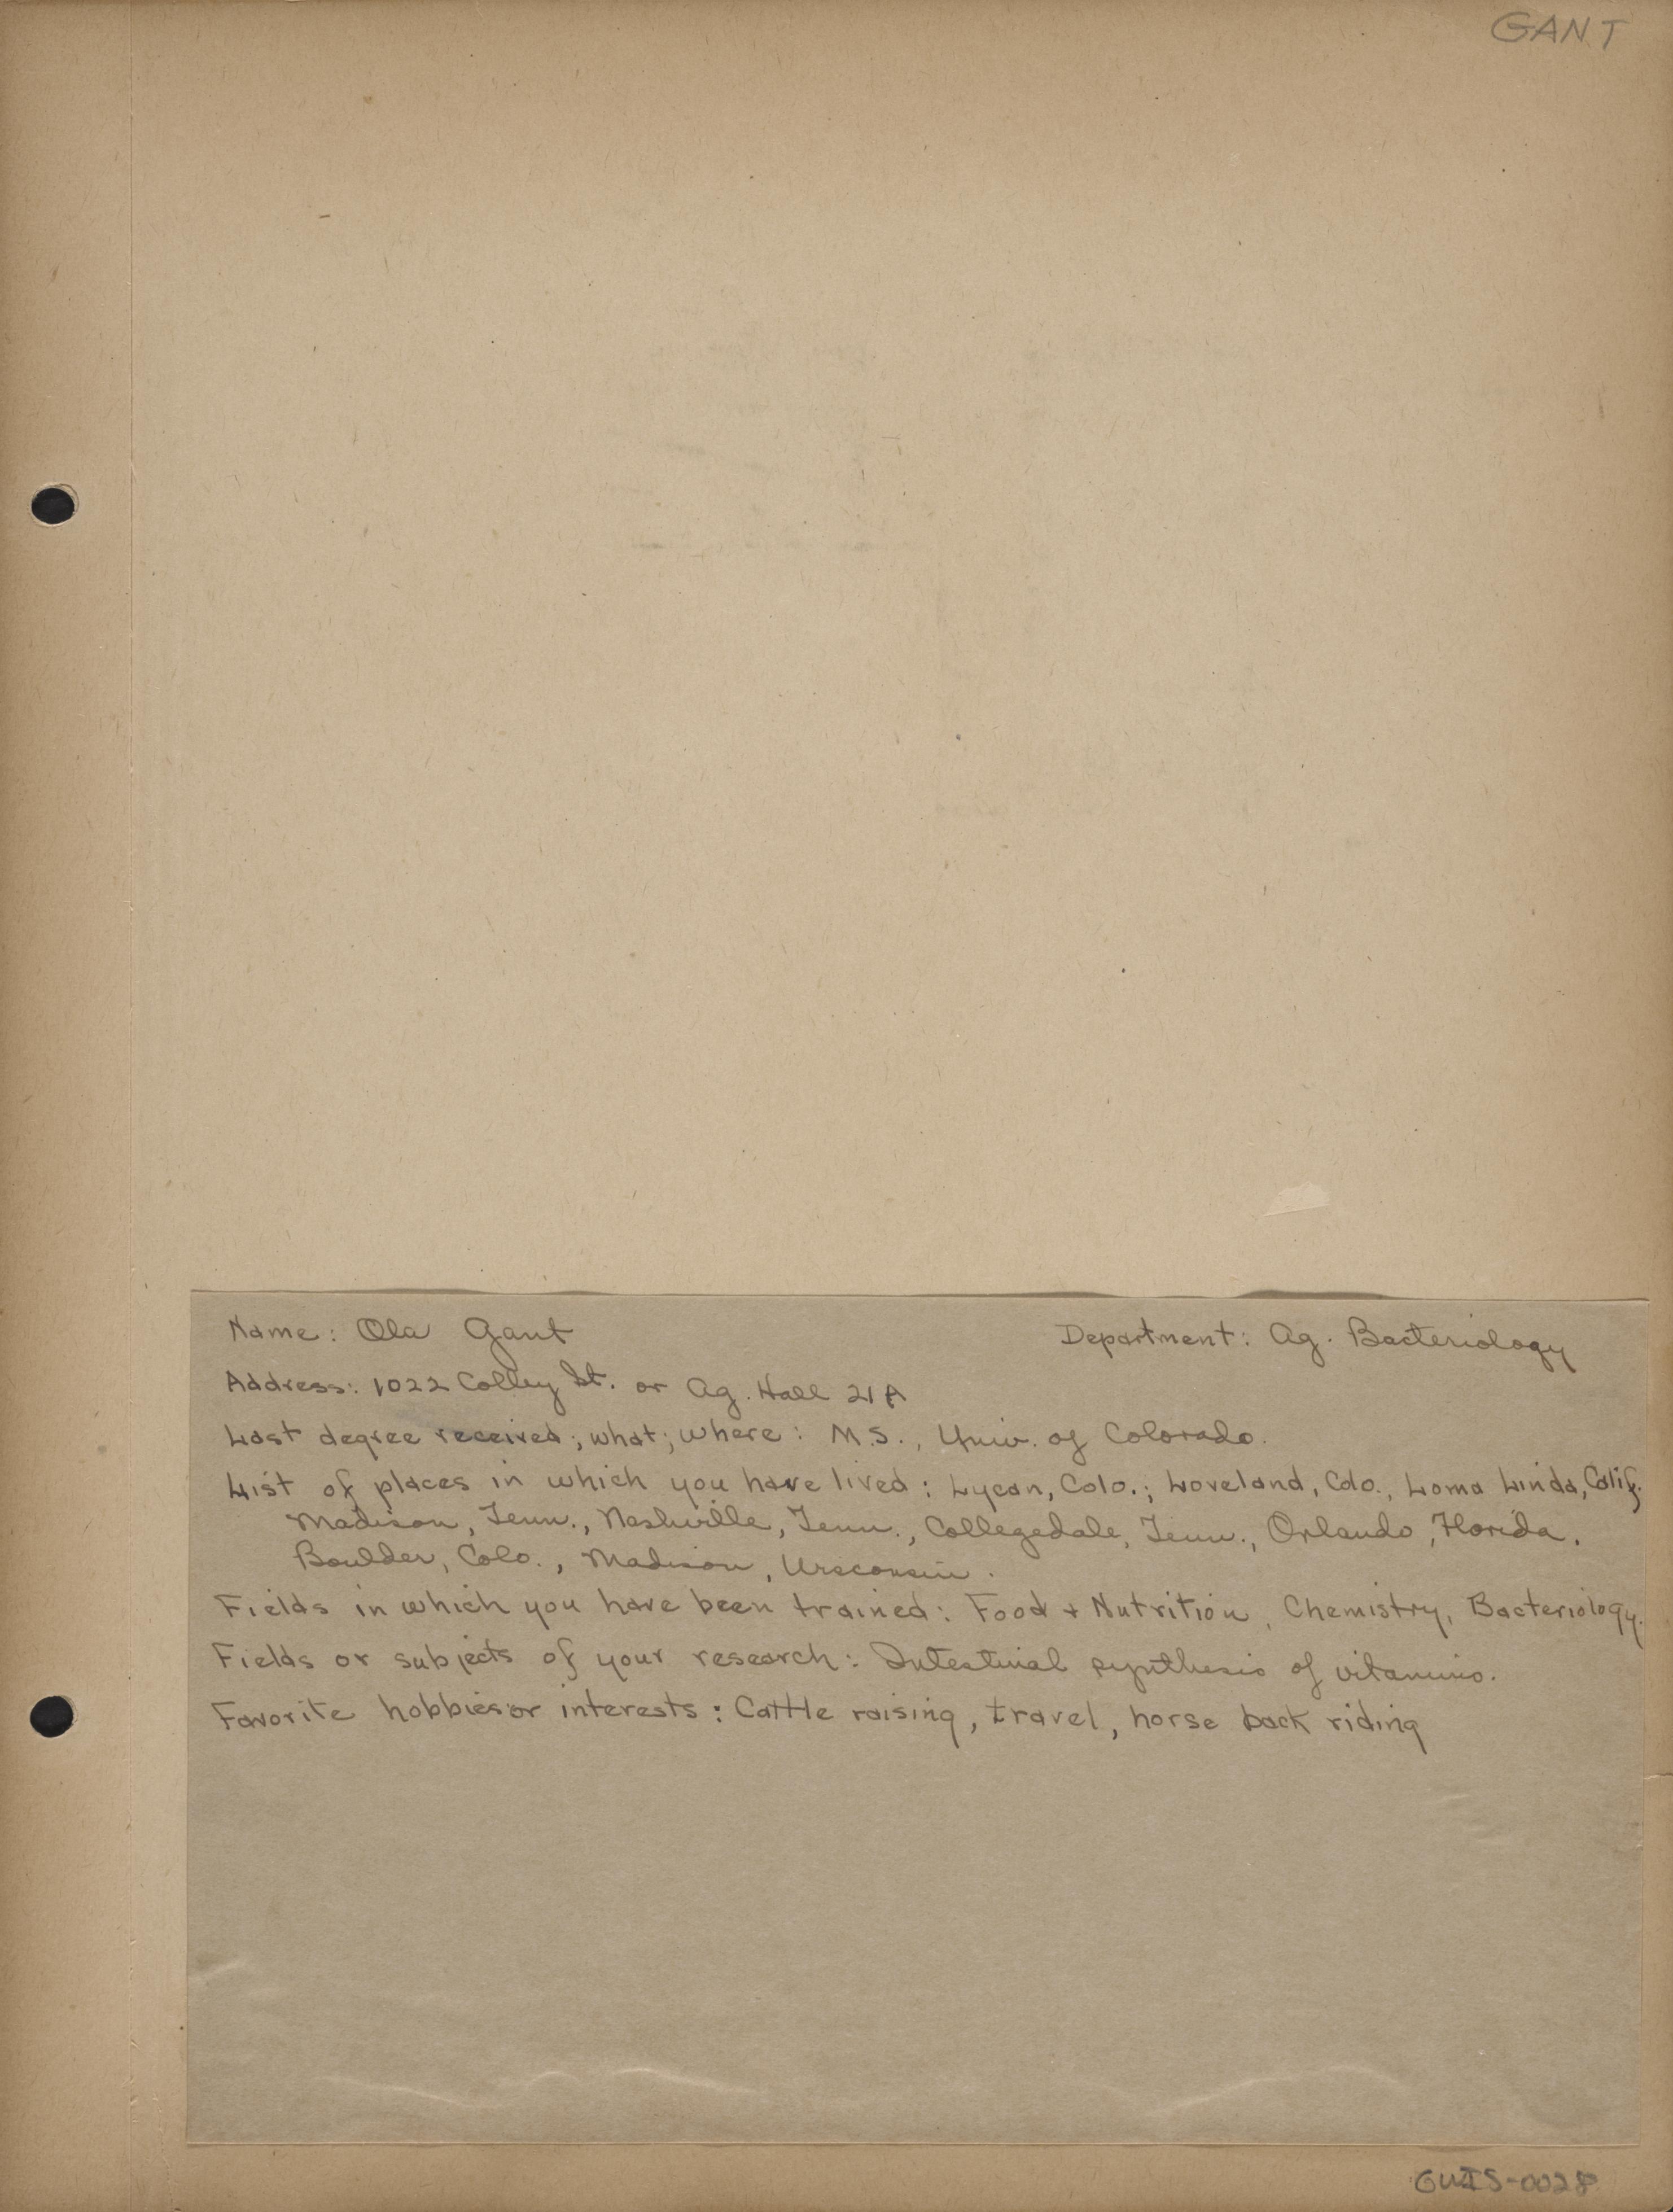 GANT
Name: Ola Gant Department: Ag. Bacteriology
Address: 1022 Colby St. or Ag. Hall 21A
Last degree received; what; where: M.S., Univ. of Colorado.
List of places in which you have lived: Lycan, Colo.; Loveland, Colo., Loma Linda, Calif.
Madison, Tenn., Nashville, Tenn., Collegedale, Tenn., Orlando, Florida.
Boulder, Colo., Madison, Wisconsin.
Fields in which you have been trained: Food + Nutrition, Chemistry, Bacteriology.
Fields or subjects of your research: Intestinal synthesis of vitamins.
Favorite hobbies or interests: Cattle raising, travel, horse back riding
GWIS-0028